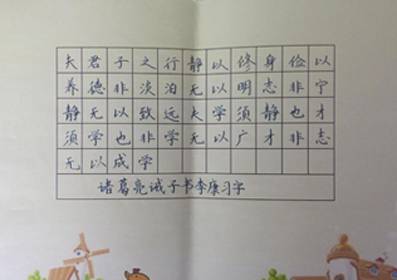 夫君子之行静以修身俭以
养德非淡泊无以明志非宁
静无以致远夫学须静也才
须学也非学无以广才非志
无以成学
诸葛亮诫子书李康习字